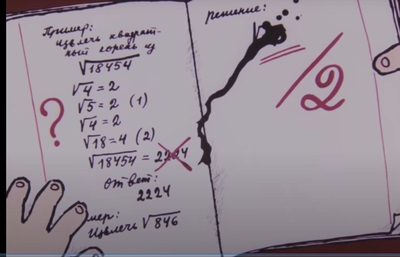 Пример:
Извлечь квадрат-
ный корень из
√18454
√4 = 2
√5 = 2 (1)
√4 = 2
√18 = 4 (2)
√18454 = 2224
ответ:
2224
мер:
Извлечь √846
?
Решение:
/2